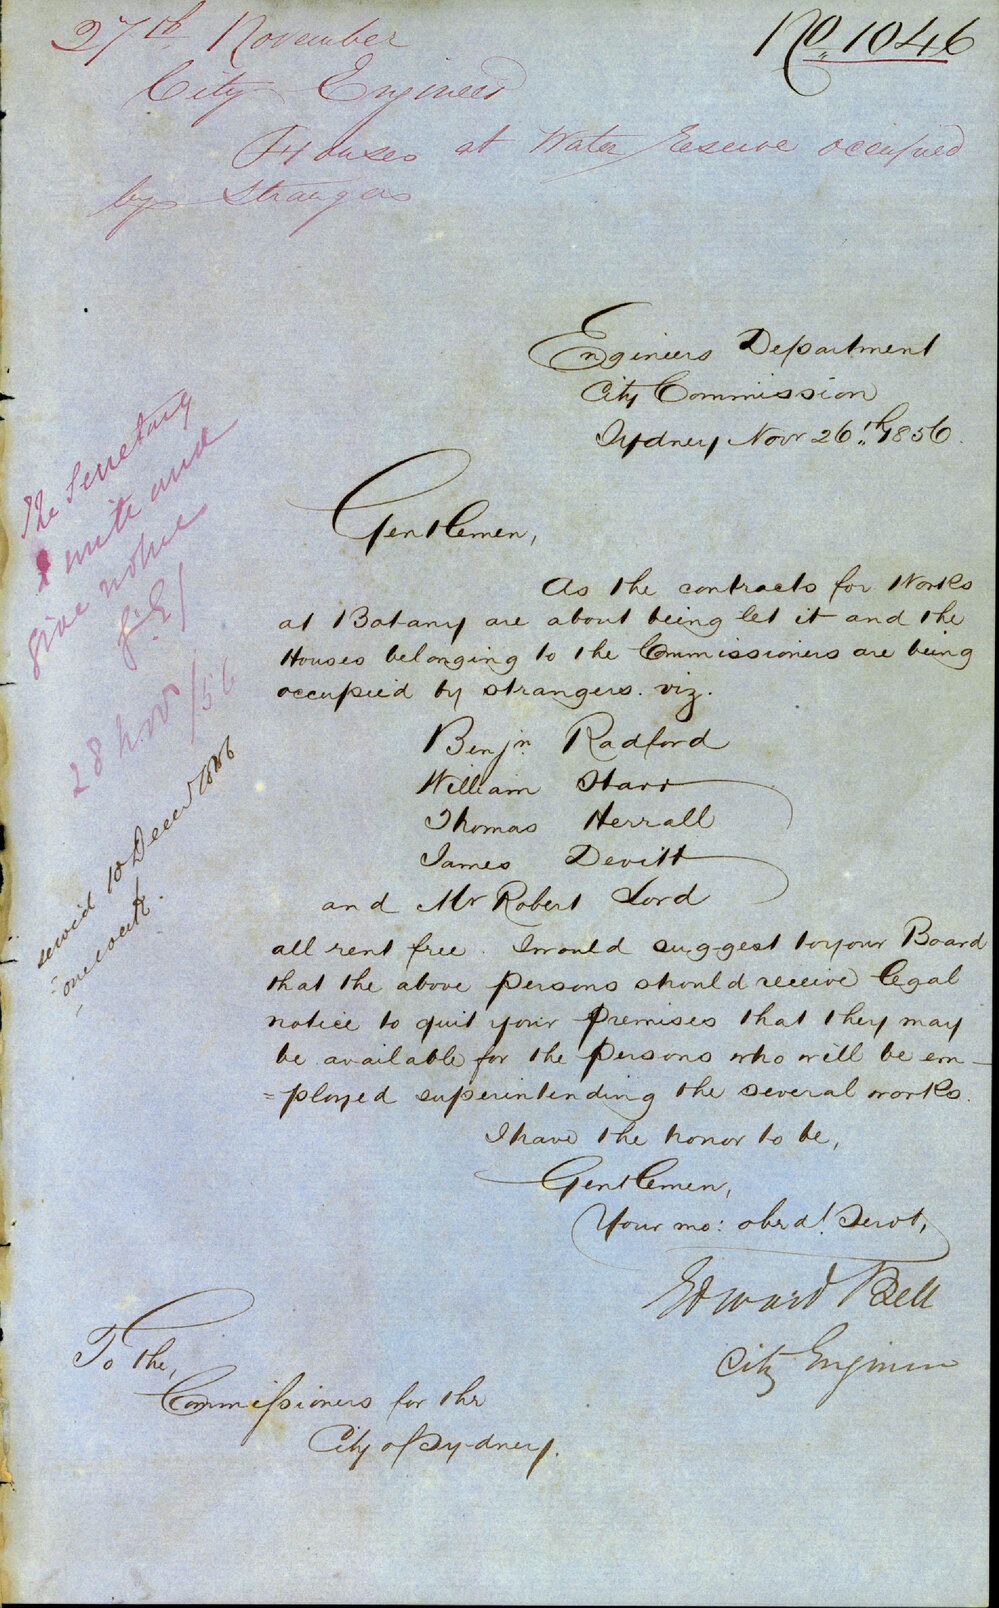 No. 1046
27th November
City Engineer
Houses at Water Reserve occupied
by Strangers
Engineers Department
City Commission
Sydney Novr 26th, 1856.
Gentlemen,
As the contracts for Works
at Botany are about being let it and the
Houses belonging to the Commissioners are being
occupied by strangers. viz.
Benjn Radford
William Starr
Thomas Herrall
James Devitt
and Mr Robert Lord
all rent free. I would suggest to your Board
that the above persons should receive legal
notice to quit your premises that they may
be available for the persons who will be em-
=ployed superintending the several works.
I have the honor to be,
Gentlemen,
Your mo: obed! Servt,
Edward Bell
City Engineer
To the,
Commissioners for the
City of Sydney.
The Secretary
write and
give notice
28 Nov/56
served 10 Decer 1856